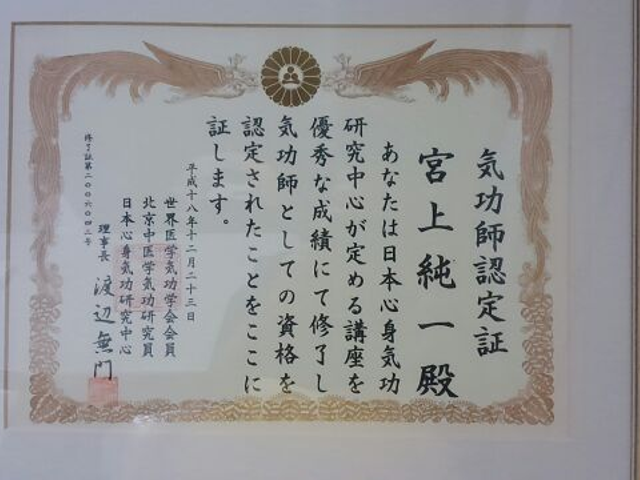 気功師認定証
宮上純一殿
あなたは日本心身気功
研究中心が定める講座を
優秀な成績にて修了し
気功師としての資格を
認定されたことをここに
証します。
平成十八年十二月二十三日
世界医学気功学会会員
北京中医学気功研究員
日本心身気功研究中心
理事長 渡辺無門
修了証第二〇〇六〇四二号